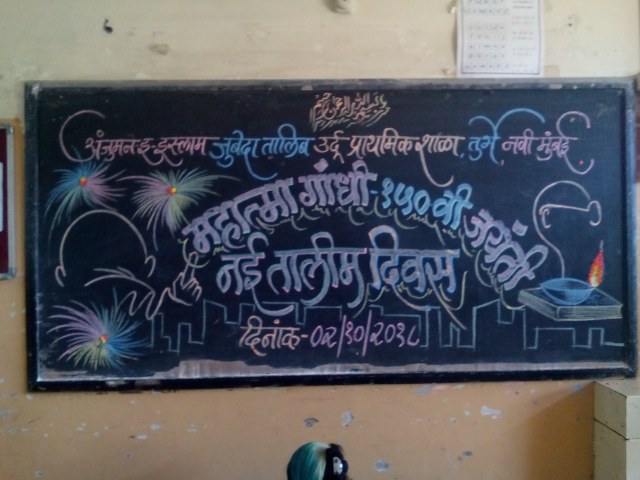 अंजुमन-इ-इस्लाम जुबेदा तालिब उर्दू प्राथमिक शाळा, तुर्भे नवी मुंबई.
महात्मा गांधी-१५०वी जयंती
नई तालीम दिवस
दिनांक-०२/१०/२०१८